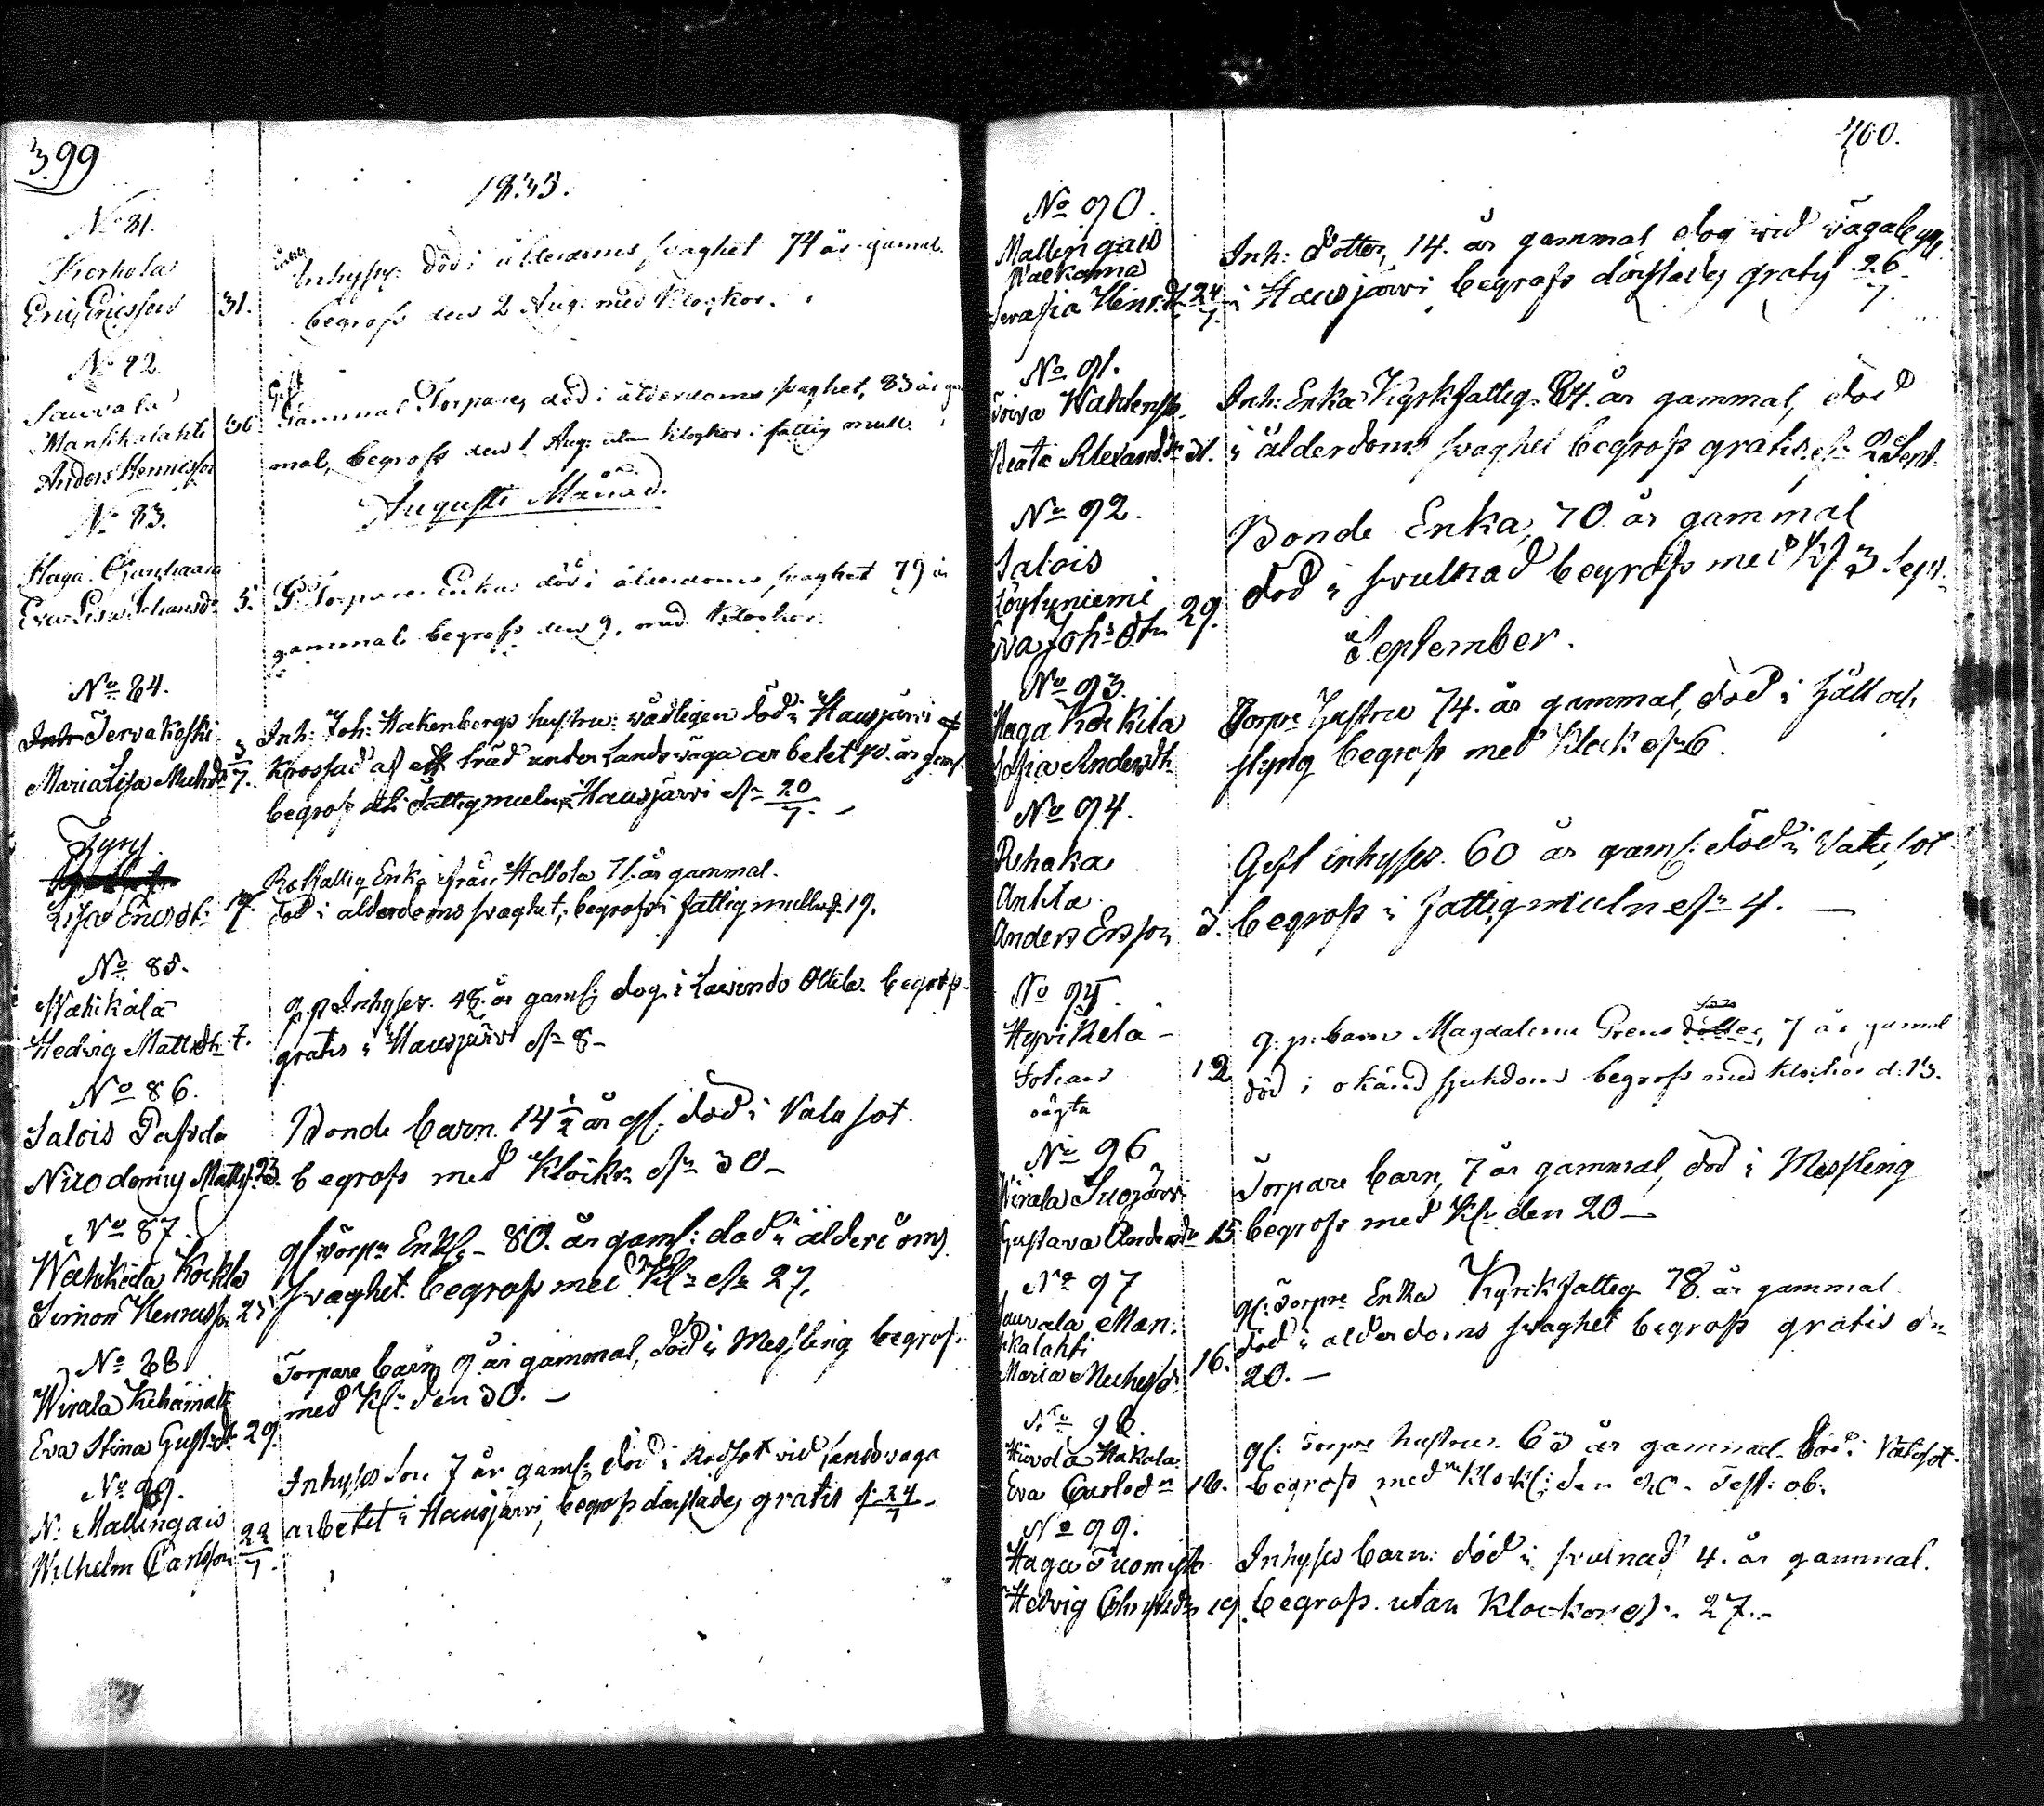 399
1833.
No 81.
Korhola
Eric Ericsson 31.
enkl. Inhyses: död i ålderdoms svaghet 74 år gamal.
begrofs den 2 Aug. med klockor.
No 82.
Sauvala
Mansikalahti
Anders Hennisso 30
Gift
Gammal Torpare, död i ålderdoms svaghet, 83 år ga
mal, begrofs den 1 Aug. utan klockor i fattig mull.
Augusti Månad.
No 83.
Haga
Eva Lisa Johansdr 5.
Gl. Torpare Enka död i ålderdoms svaghet 79 år
gammal begrofs den 9. med klockor.
No 84.
Inh. Tervakoski
Maria Lisa Michdr 3/7.
Inh: Joh: Hakenbergs hustru: vådligen död i Hausjärvi
krossad af ett träd under Landsväga arbetet 40. år gaml.
begrofs i fattigmullen i Hausjärvi dn 20/7. -
Lisa Ericsdr: 17.
Rotfattig Enka ifrån Hollola 71. år gammal.
död i ålderdoms svaghet; begrofs i fattigmullen d. 19.
No 85.
Wähikälä
Hedvig Mattsdr 7.
g. p. Inhyses. 48. år gaml: dog i Lavindo Ollila begrofs
gratis i Hausjärvi dn 8-
No 86.
Salois Pafsda
Nicodemus Matts. 23.
Bonde barn. 14 1/2 år gl. död i Vatusot.
begrofs med Klockr dn 30-
No 87.
Wähikälä Kockla
Simon Henriss. 25
gl torpre Enkl: - 80. år gaml: död i ålderdoms
svaghet. begrofs med Kl- dn 27.
No 88.
Wirala Kihämäki
Eva Stina Gustdr 29.
Torpare barn 9 år gammal, död i Messling begrof.
med Kl: den 30. -
No 89.
N: Mallingais
Wilhelm Carlsson 22/7.
Inhyses Son 7 år gaml: död i Rödsot vid landsvaga
arbetet i Hausjärvi, begrofs därstädes gratis d. 24/7 -
400.
No 90.
Mallingais
Walkama
Serafia Henr.dr 24/7.
Inh: dotter, 14. år gammal dog vid vägabygg.
i Hausjärvi begrofs därstädes gratis 26/7.
No 91.
Toiva Wahtersp.
Beata Alexandr. dr 31.
Inh: Enka Kyrkfattig. 84. år gammal, död
i ålderdoms svaghet begrofs gratis. dn 2 Sept.
No 92.
Salois
Löytyniemi
Eva Johs dtr 29.
Bonde Enka, 70 år gammal
död i svullnad begrofs med Kl. 3 Sept.
September.
No 93.
Haga Kockila
Sofia Andersdtr
Torpre Hustru 74. år gammal, död i håll och
styng begrofs med klock dn 6.
No 94.
Rehaka
Anttla
Anders Ersson 3.
Gift inhyses. 60 år gaml: död i Vatusot
begrofs i fattigmullen dn 4. -
No 95.
Hyvikelä -
Johan
oägta 12
g. p: barn Magdalena Grens dotter son, 7 år gamal
död i okänd sjukdom begrofs med klockor d. 13.
No 96
Wirala Suojärvi
Gustava Andersdr 15
Torpare barn, 7 år gammal, död i Messling
begrofs med Kl: den 20 -
No 97
Sauvala Man-
sikalahti
Maria Michelsdr 16.
gl. Torpre Enka Kyrkfattig 78. år gammal
död i ålderdoms svaghet begrofs gratis dn
20. -
No 98.
Hiivola Hakala:
Eva Carlsdr 16.
gl. Torpre hustru. 63 år gammal. död i Vatusot.
begrofs med Klockl: den 20. Test: ob:
No 99.
Haga Tuomisto
Hedvig Christsdr 19.
Inhyses barn: död i svulnad 4. år gammal.
begrofs. utan Klockor dn 27. -